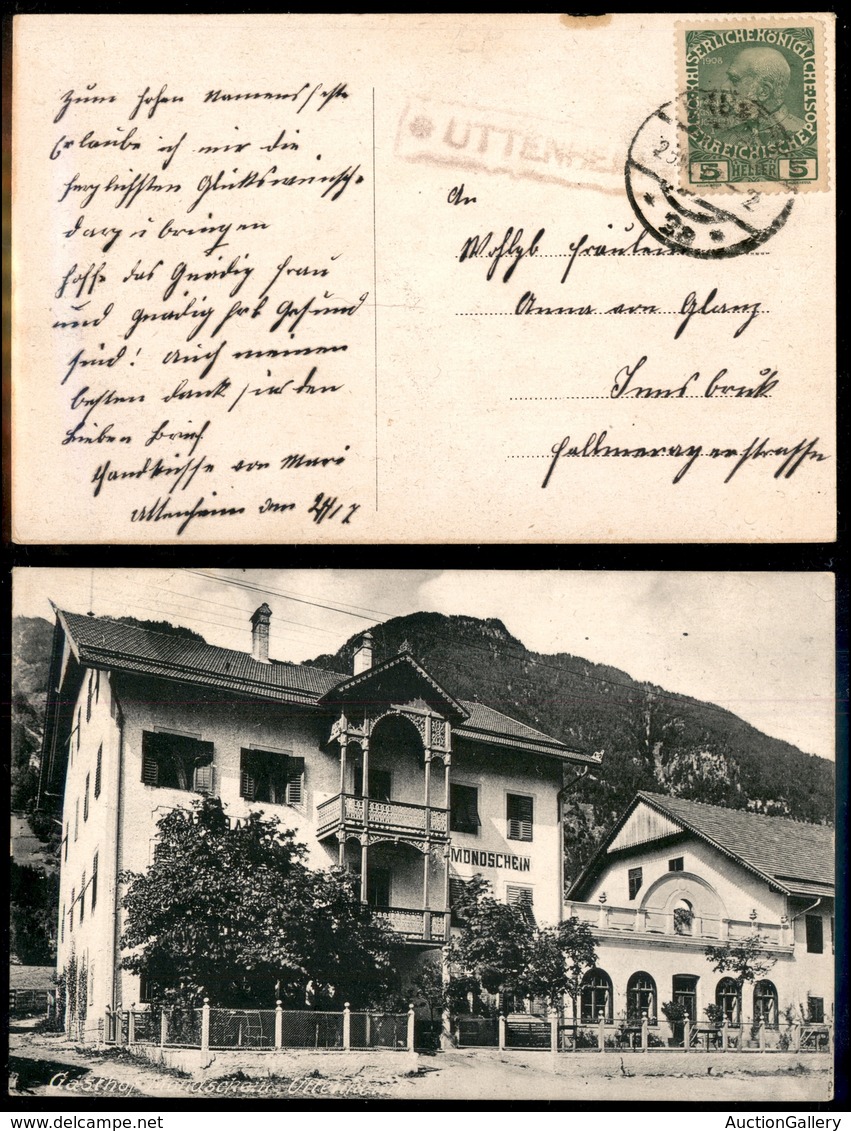 Zum hohen Namensfeste
Erlaube ich mir die
herzlichsten Glückswünsch-
darzubringen
hoffe das Gnädig Frau
und gnädig Gesund
sind! Auch meinen
besten dank für den
lieben Brief.
Handküsse von Mari
Uttenheim den 24/7
* UTTENHEI
KAISERLICHEKÖNIGLICHE
1908
5 HELLER 5
2a
An
Wohlgb Fräulein
Anna von Glanz
Innsbruk
Fallmerayerstrasse
MONDSCHEIN
Gasthof Mondschein Uttenheim
AuctionGallery.com